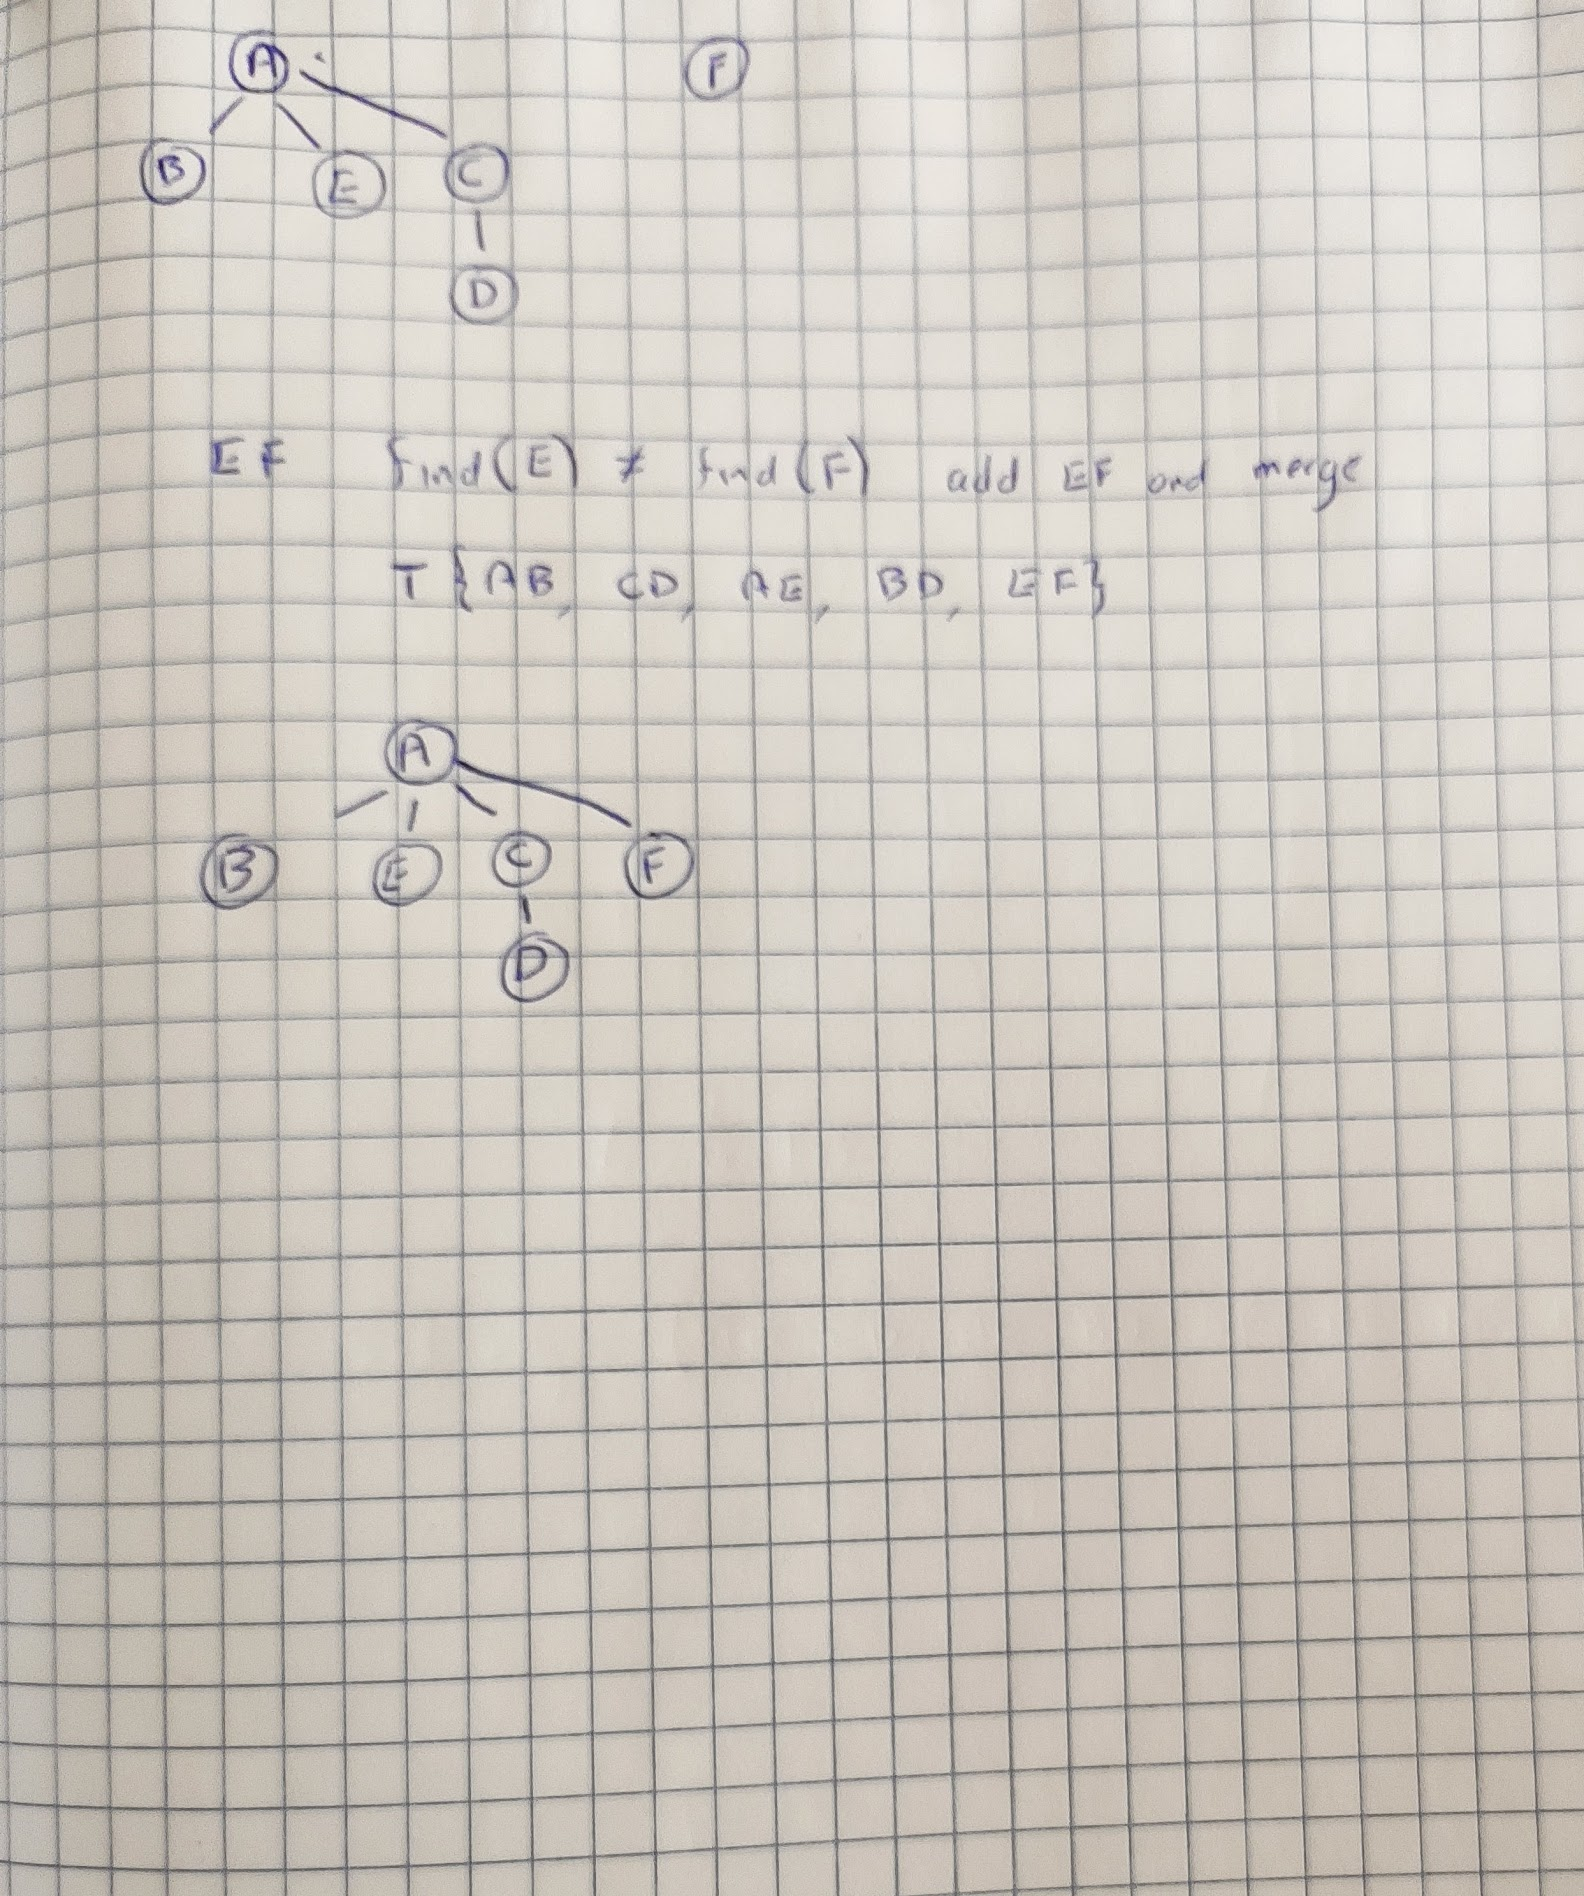 A F
B E C
D
EF find(E) ≠ find(F) add EF and merge
T {AB, CD, AE, BD, EF}
A
B E C F
D